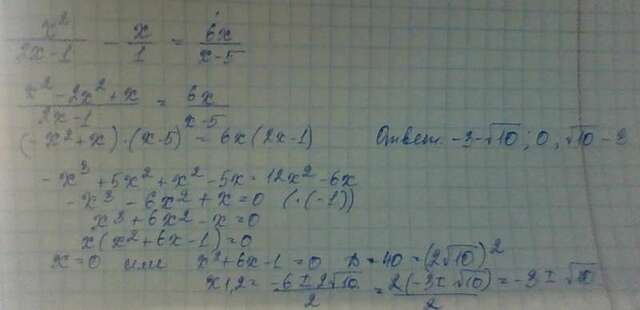 x²/(2x-1) - x/1 = 6x/(x-5)
(x² - 2x² + x)/(2x-1) = 6x/(x-5)
(-x² + x)·(x-5) = 6x(2x-1) Ответ. -3-√10; 0, √10-3
-x³ + 5x² + x² - 5x = 12x² - 6x
-x³ - 6x² + x = 0 (·(-1))
x³ + 6x² - x = 0
x(x² + 6x - 1) = 0
x = 0 или x² + 6x - 1 = 0 D = 40 = (2√10)²
x1,2 = (-6 ± 2√10)/2 = 2(-3 ± √10)/2 = -3 ± √10